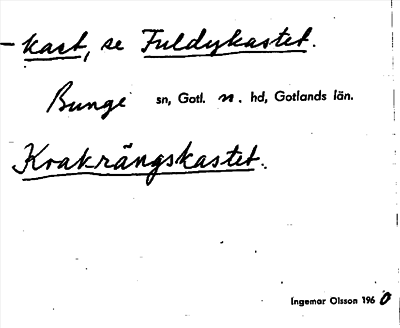 – kast, se Fuldykastet.
Bunge sn, Gotl. n. hd, Gotlands län.
Kvakrängskastet.
Ingemar Olsson 1960